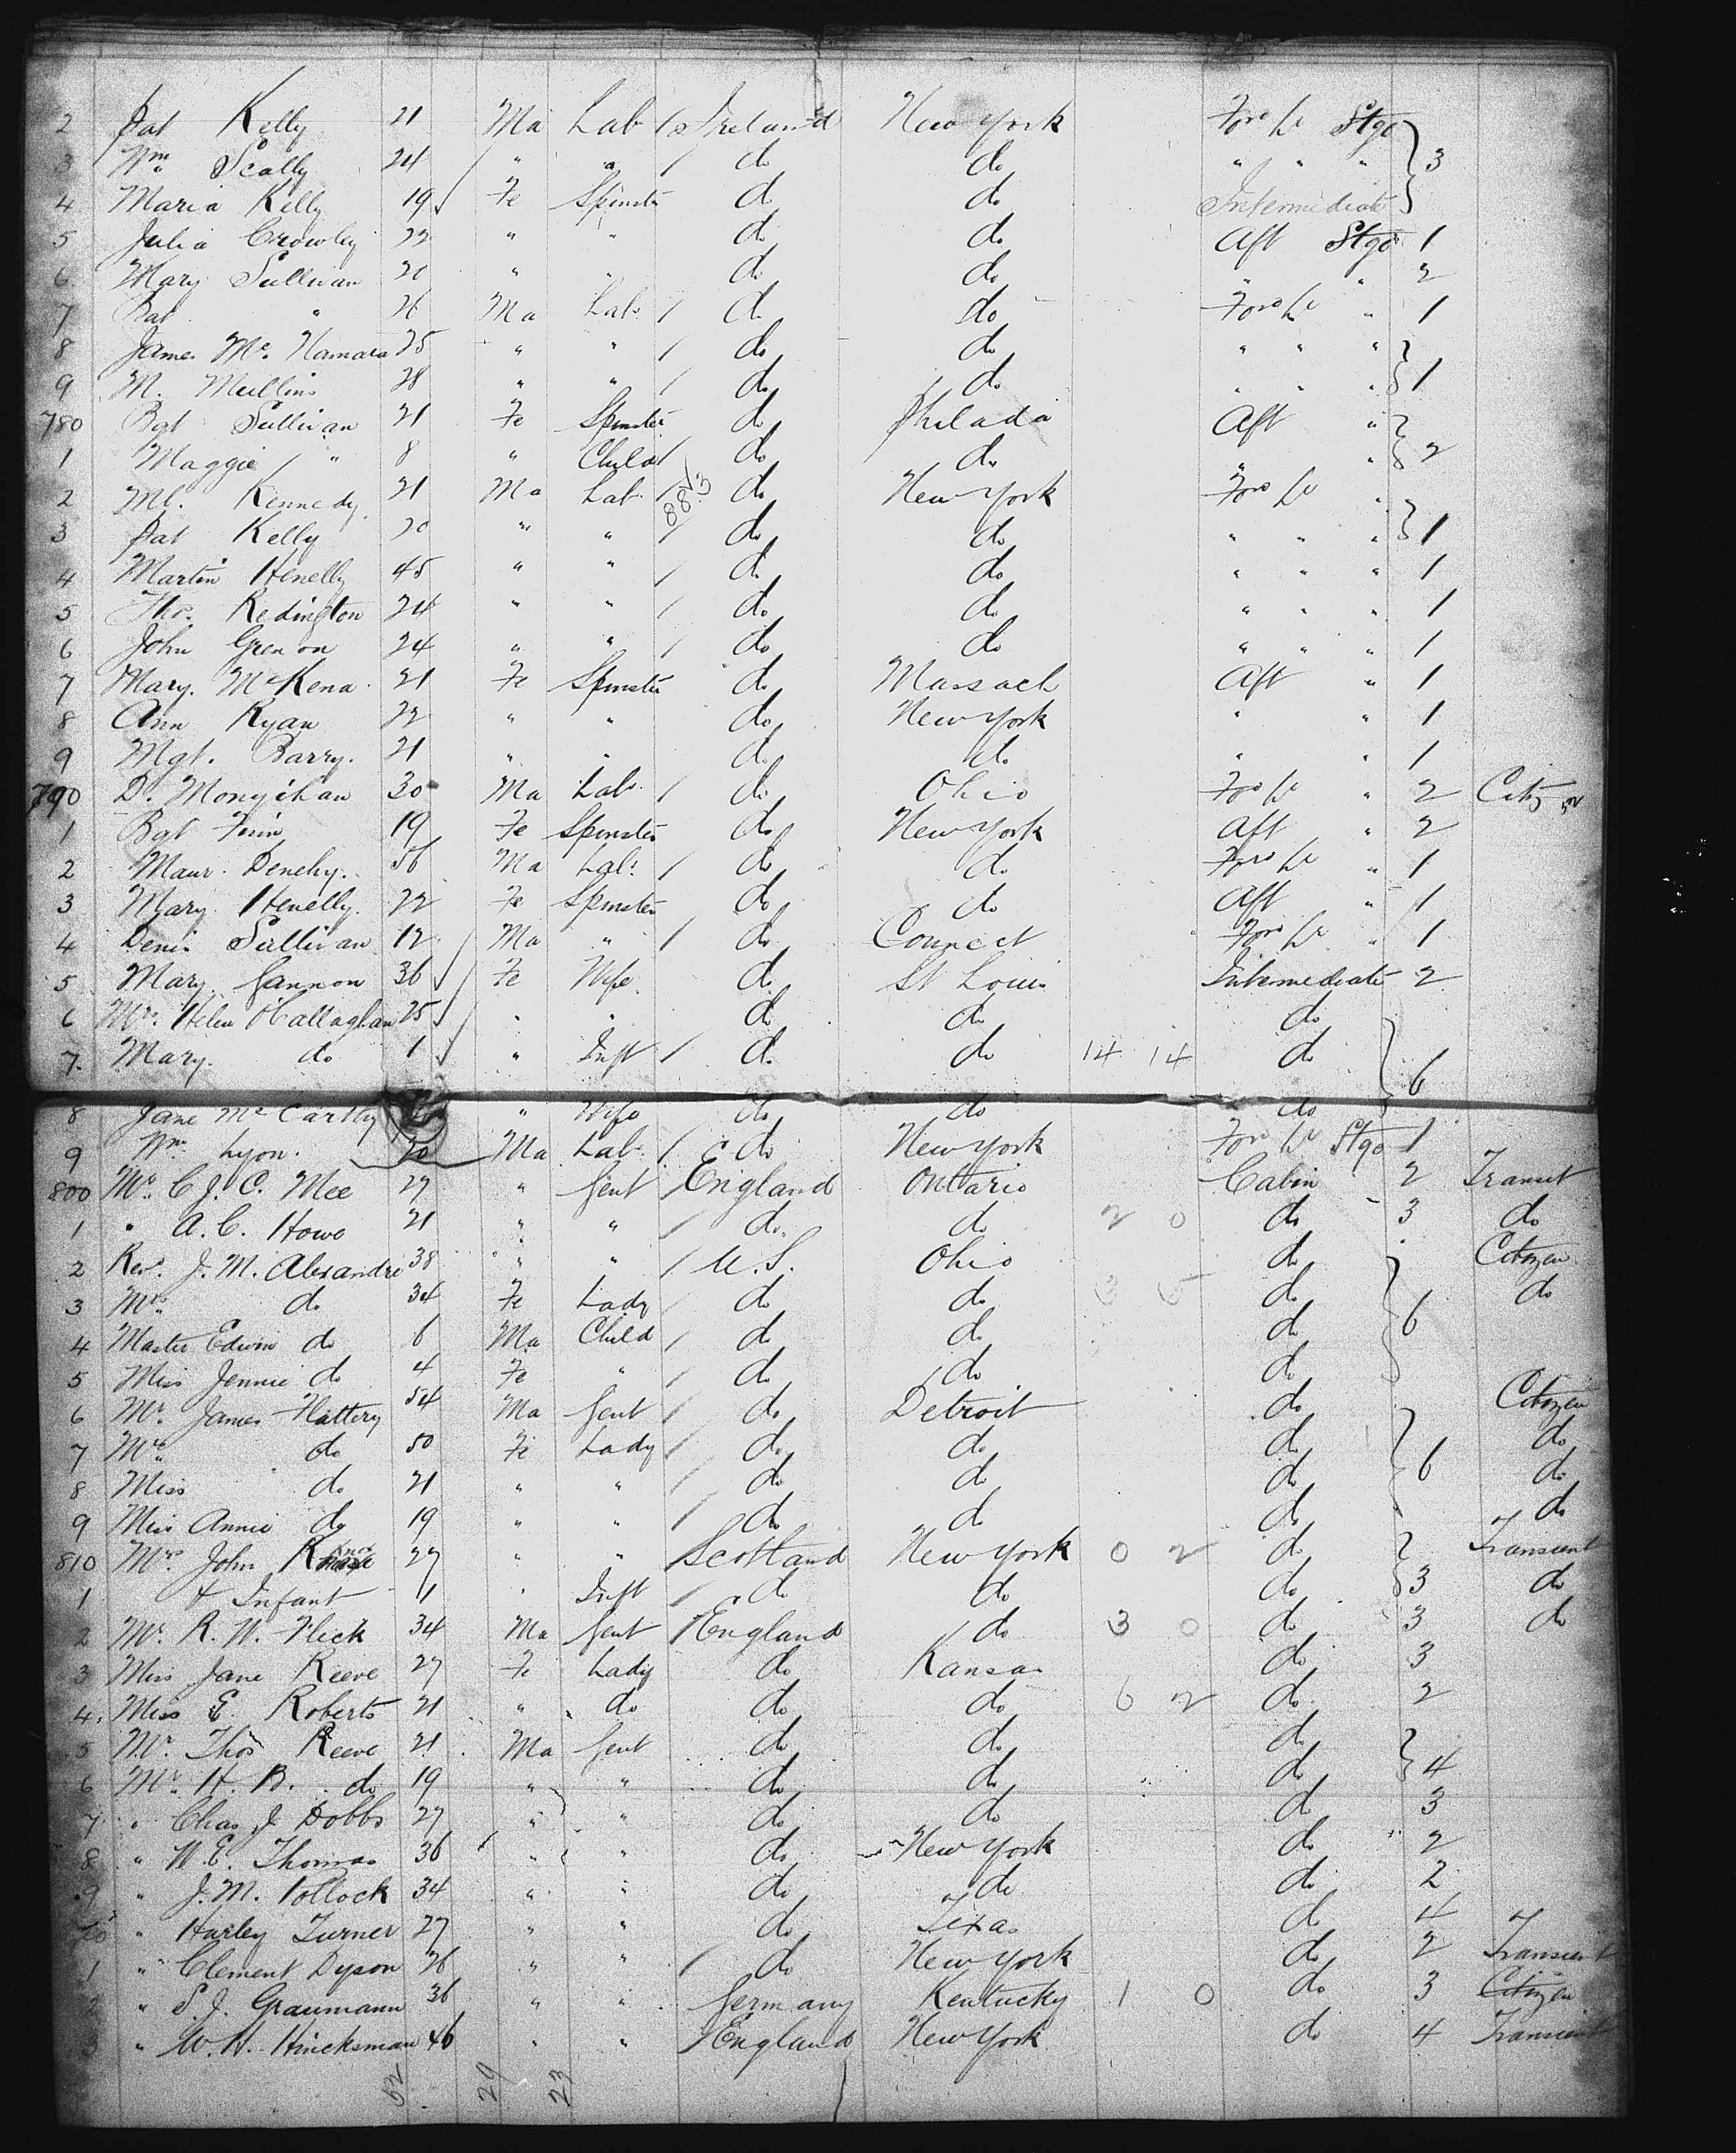 2 Pat Kelly 21 Ma Lab / Ireland New York Forwd Stge
3 Wm Scally 24 " " / do do " " " 3
4 Maria Kelly 19 Fe Spinster do do Intermediate
5 Julia Crowley 22 " " do do Aft Stge 1
6 Mary Sullivan 20 " " do do " " 2
7 Pat " 26 Ma Lab / do do Forwd " 1
8 James McNamara 25 " " / do do " " "
9 M. Mullins 28 " " / do do " " " 1
780 Bgt Sullivan 21 Fe Spinster do Philada Aft "
1 Maggie " 8 " Child / do do " " 2
2 Ml. Kennedy 21 Ma Lab / 883 do New York Forwd "
3 Pat Kelly 20 " " / do do " " " 1
4 Martin Henelly 45 " " / do do " " " 1
5 Thos. Redington 24 " " / do do " " " 1
6 John Grenon 24 " " / do do " " " 1
7 Mary. McKena 21 Fe Spinster do Massach Aft " 1
8 Ann Ryan 22 " " do New York " " 1
9 Mgt. Barry. 21 " " do do " " 1
790 D. Monyihan 30 Ma Lab / do Ohio Forwd " 2 Citizen
1 Bgt Finn 19 Fe Spinster do New York Aft " 2
2 Maur. Denehy. 56 Ma Lab / do do Forwd " 1
3 Mary Henelly. 22 Fe Spinster do do Aft " 1
4 Denis Sullivan 12 Ma " / do Connect Forwd " 1
5 Mary Gannon 36 Fe Wife do St Louis Intermediate 2
6 Mrs. Helen O'Callaghan 25 " " do do do
7. Mary. do 1 " Inft / do do 14 14 do 6
8 Jane McCarthy " Wife do do do
9 Wm Lyon. 20 Ma Lab / do New York Forwd Stge 1
800 Mr. C. J. C. Mee 27 " Gent / England Ontario Cabin 2 Transit
1 " A. C. Howe 21 " " / do do 2 0 do 3 do
2 Rev. J. M. Alexandre 38 " " / U.S. Ohio do Citizen
3 Mrs. do 34 Fe Lady / do do 3 5 do 6 do
4 Master Edwin do 6 Ma Child / do do do
5 Miss Jennie do 4 Fe " / do do do
6 Mr. James Flattery 54 Ma Gent / do Detroit do Citizen
7 Mrs. do 50 Fe Lady / do do do 6 do
8 Miss do 21 " " / do do do do
9 Miss Annie do 19 " " / do do do do
810 Mrs. John Knox 27 " " Scotland New York 0 2 do Transient
1 & Infant 11 " Inft / do do do 3 do
2 Mr. R. W. Fleck 34 Ma Gent / England do 3 0 do 3 do
3 Miss Jane Reeve 27 Fe Lady do Kansas do 3
4. Miss E. Roberts 21 " do do do 6 2 do 2
5 Mr. Thos Reeve 21 Ma Gent do do do
6 Mr. H. B. do 19 " " do do do 4
7 " Chas. J. Dobbs 27 " " do do do 3
8 " W. E. Thomas 36 " " do New York do 2
9 " J. M. Pollock 34 " " do do do 2
20 " Harley Turner 27 " " do Texas do 4
1 " Clement Dyson 26 " " / do New York do 2 Transient
2 " S. J. Graumann 36 " " Germany Kentucky 1 0 do 3 Citizen
3 " W. H. Hincksman 46 " " England New York do 4 Transient
52 29 23